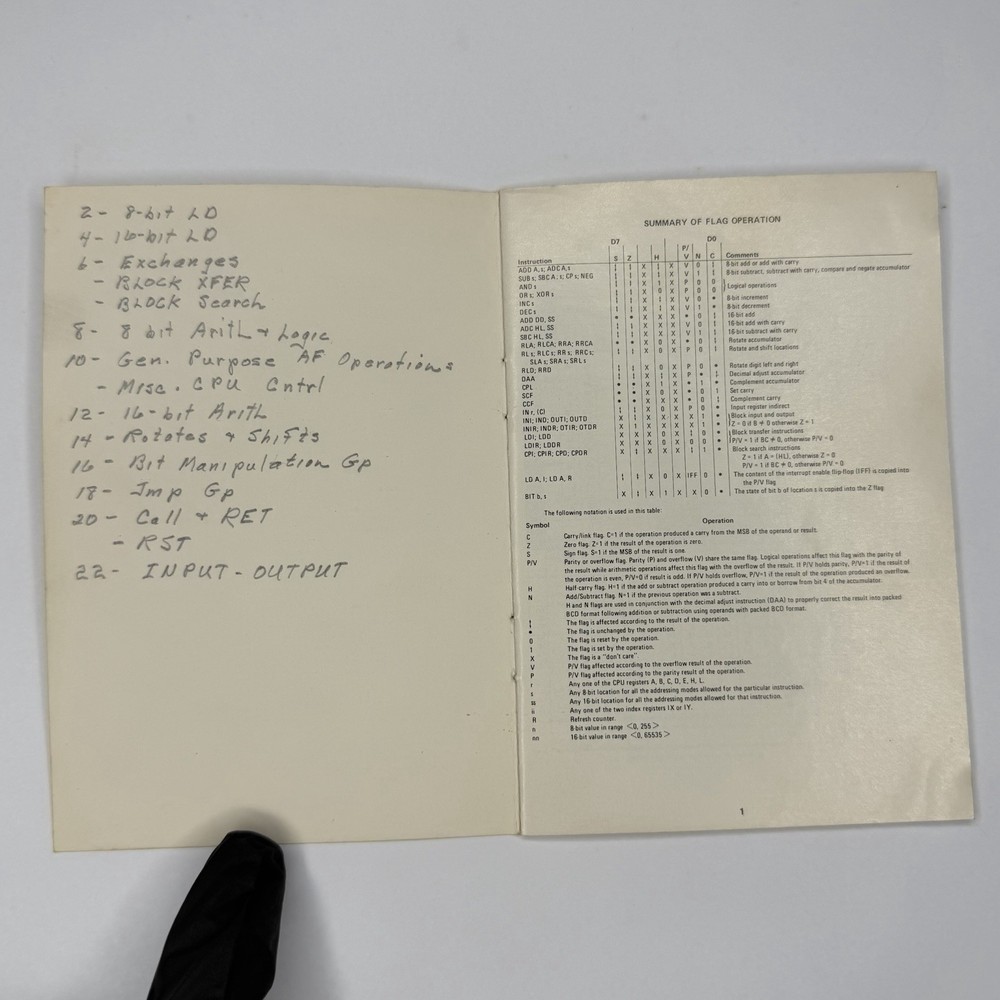 2- 8-bit LD
4- 16-bit LD
6- Exchanges
- BLOCK XFER
- BLOCK Search
8- 8 bit Arith + Logic
10- Gen. Purpose AF Operations
- Misc. CPU Cntrl
12- 16-bit Arith
14- Rotates + Shifts
16- Bit Manipulation Gp
18- Jmp Gp
20- Call + RET
- RST
22- INPUT-OUTPUT
SUMMARY OF FLAG OPERATION
D7 D0
P/
Instruction S Z H V N C Comments
ADD A, s; ADC A, s ↕ ↕ X ↕ X V 0 ↕ 8-bit add or add with carry
SUB s; SBC A, s; CP s; NEG ↕ ↕ X ↕ X V 1 ↕ 8-bit subtract, subtract with carry, compare and negate accumulator
AND s ↕ ↕ X 1 X P 0 0 Logical operations
OR s; XOR s ↕ ↕ X 0 X P 0 0
INC s ↕ ↕ X ↕ X V 0 • 8-bit increment
DEC s ↕ ↕ X ↕ X V 1 • 8-bit decrement
ADD DD, SS • • X X X • 0 ↕ 16-bit add
ADC HL, SS ↕ ↕ X X X V 0 ↕ 16-bit add with carry
SBC HL, SS ↕ ↕ X X X V 1 ↕ 16-bit subtract with carry
RLA; RLCA; RRA; RRCA • • X 0 X • 0 ↕ Rotate accumulator
RL s; RLC s; RR s; RRC s; ↕ ↕ X 0 X P 0 ↕ Rotate and shift locations
SLA s; SRA s; SRL s
RLD; RRD ↕ ↕ X 0 X P 0 • Rotate digit left and right
DAA ↕ ↕ X ↕ X P • ↕ Decimal adjust accumulator
CPL • • X 1 X • 1 • Complement accumulator
SCF • • X 0 X • 0 1 Set carry
CCF • • X X X • 0 ↕ Complement carry
IN r, (C) ↕ ↕ X 0 X P 0 • Input register indirect
INI; IND; OUTI; OUTD X ↕ X X X X 1 • Block input and output
INIR; INDR; OTIR; OTDR X 1 X X X X 1 • Z = 0 if B ≠ 0 otherwise Z = 1
LDI; LDD X X X 0 X ↕ 0 • Block transfer instructions
LDIR; LDDR X X X 0 X 0 0 • P/V = 1 if BC ≠ 0, otherwise P/V = 0
CPI; CPIR; CPD; CPDR X ↕ X X X ↕ 1 • Block search instructions
Z = 1 if A = (HL), otherwise Z = 0
P/V = 1 if BC ≠ 0, otherwise P/V = 0
LD A, I; LD A, R ↕ ↕ X 0 X IFF 0 • The content of the interrupt enable flip-flop (IFF) is copied into
the P/V flag
BIT b, s X ↕ X 1 X X 0 • The state of bit b of location s is copied into the Z flag
The following notation is used in this table:
Symbol Operation
C Carry/link flag. C=1 if the operation produced a carry from the MSB of the operand or result.
Z Zero flag. Z=1 if the result of the operation is zero.
S Sign flag. S=1 if the MSB of the result is one.
P/V Parity or overflow flag. Parity (P) and overflow (V) share the same flag. Logical operations affect this flag with the parity of
the result while arithmetic operations affect this flag with the overflow of the result. If P/V holds parity, P/V=1 if the result of
the operation is even, P/V=0 if result is odd. If P/V holds overflow, P/V=1 if the result of the operation produced an overflow.
H Half-carry flag. H=1 if the add or subtract operation produced a carry into or borrow from bit 4 of the accumulator.
N Add/Subtract flag. N=1 if the previous operation was a subtract.
H and N flags are used in conjunction with the decimal adjust instruction (DAA) to properly correct the result into packed
BCD format following addition or subtraction using operands with packed BCD format.
↕ The flag is affected according to the result of the operation.
• The flag is unchanged by the operation.
0 The flag is reset by the operation.
1 The flag is set by the operation.
X The flag is a "don't care".
V P/V flag affected according to the overflow result of the operation.
P P/V flag affected according to the parity result of the operation.
r Any one of the CPU registers A, B, C, D, E, H, L.
s Any 8-bit location for all the addressing modes allowed for the particular instruction.
ss Any 16-bit location for all the addressing modes allowed for that instruction.
ii Any one of the two index registers IX or IY.
R Refresh counter.
n 8-bit value in range <0, 255>
nn 16-bit value in range <0, 65535>
1